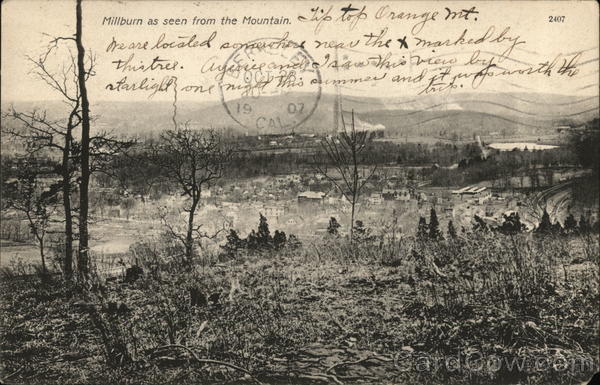 Millburn as seen from the Mountain. Tip top Orange Mt. 2407
We are located somewhere near the x marked by
this tree. and I saw this view by
starlight one night this summer and it was worth the
OCT
19 07
CAL.
CardCow.com